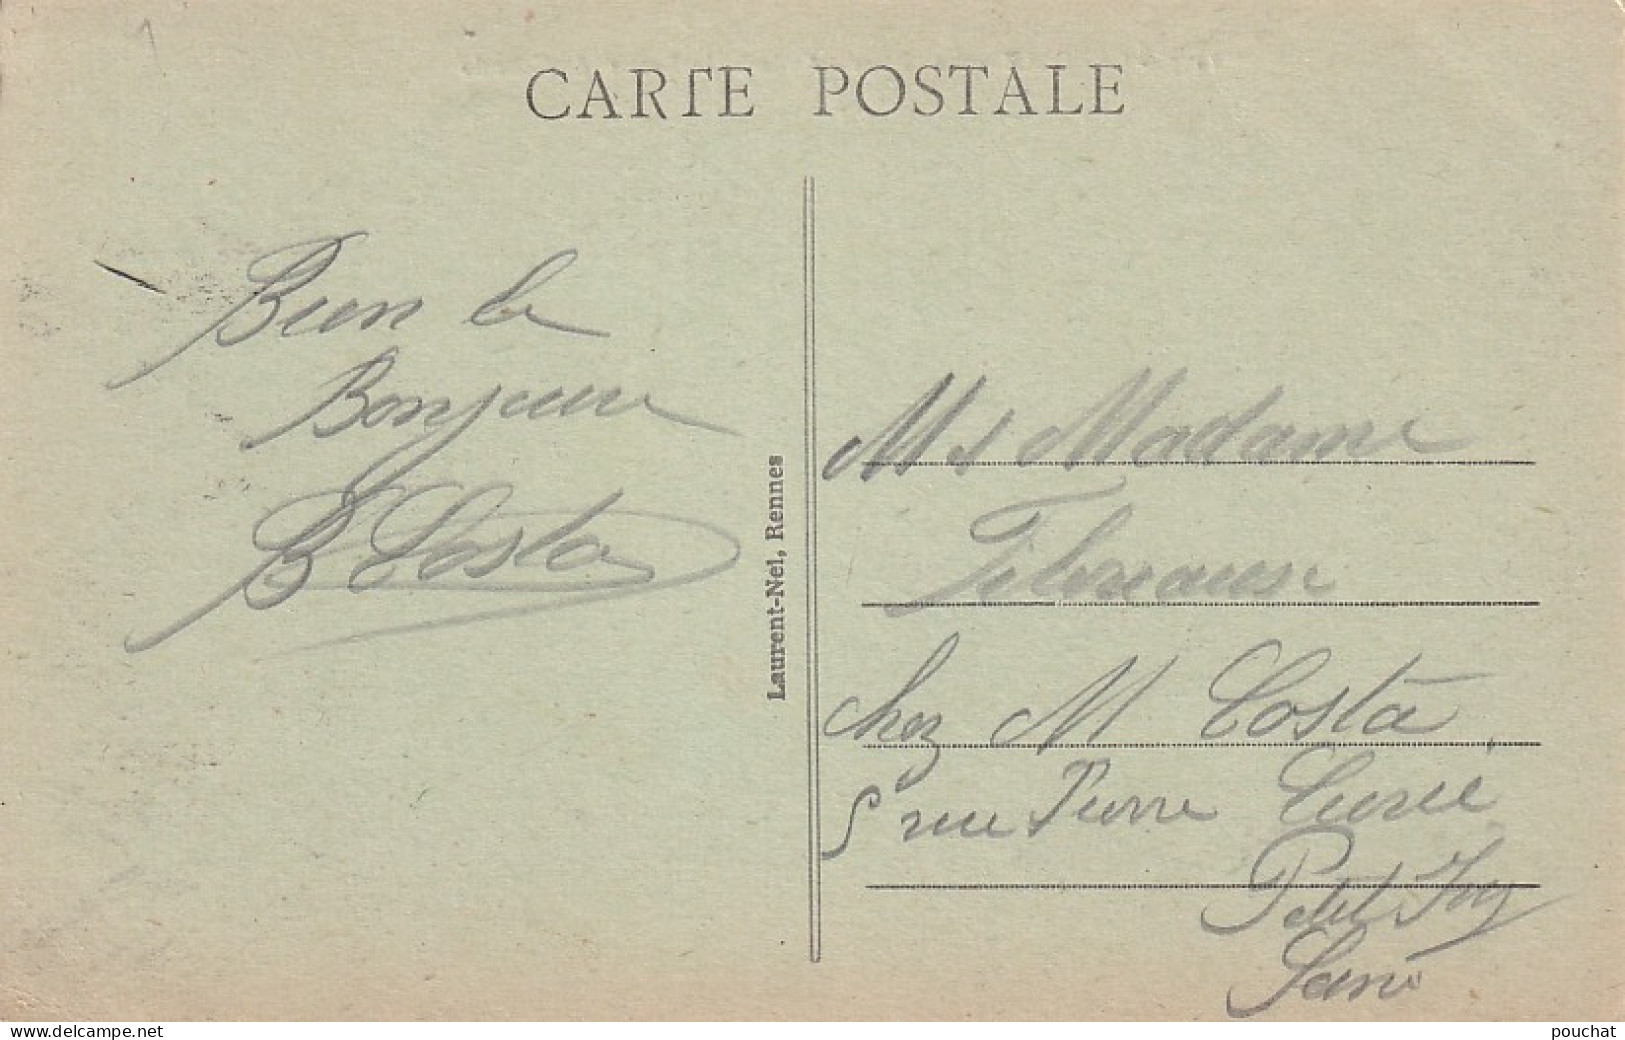 1
CARTE POSTALE
Bien le
Bonjour
B Costa
Laurent-Nel, Rennes
M & Madame
chez M Costa,
5 rue Pierre Curie
Petit Ivry
Seine
www.delcampe.net
pouchat